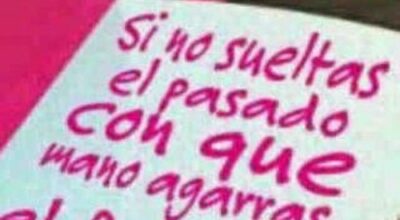 Si no sueltas
el pasado
con que
mano agarras
el